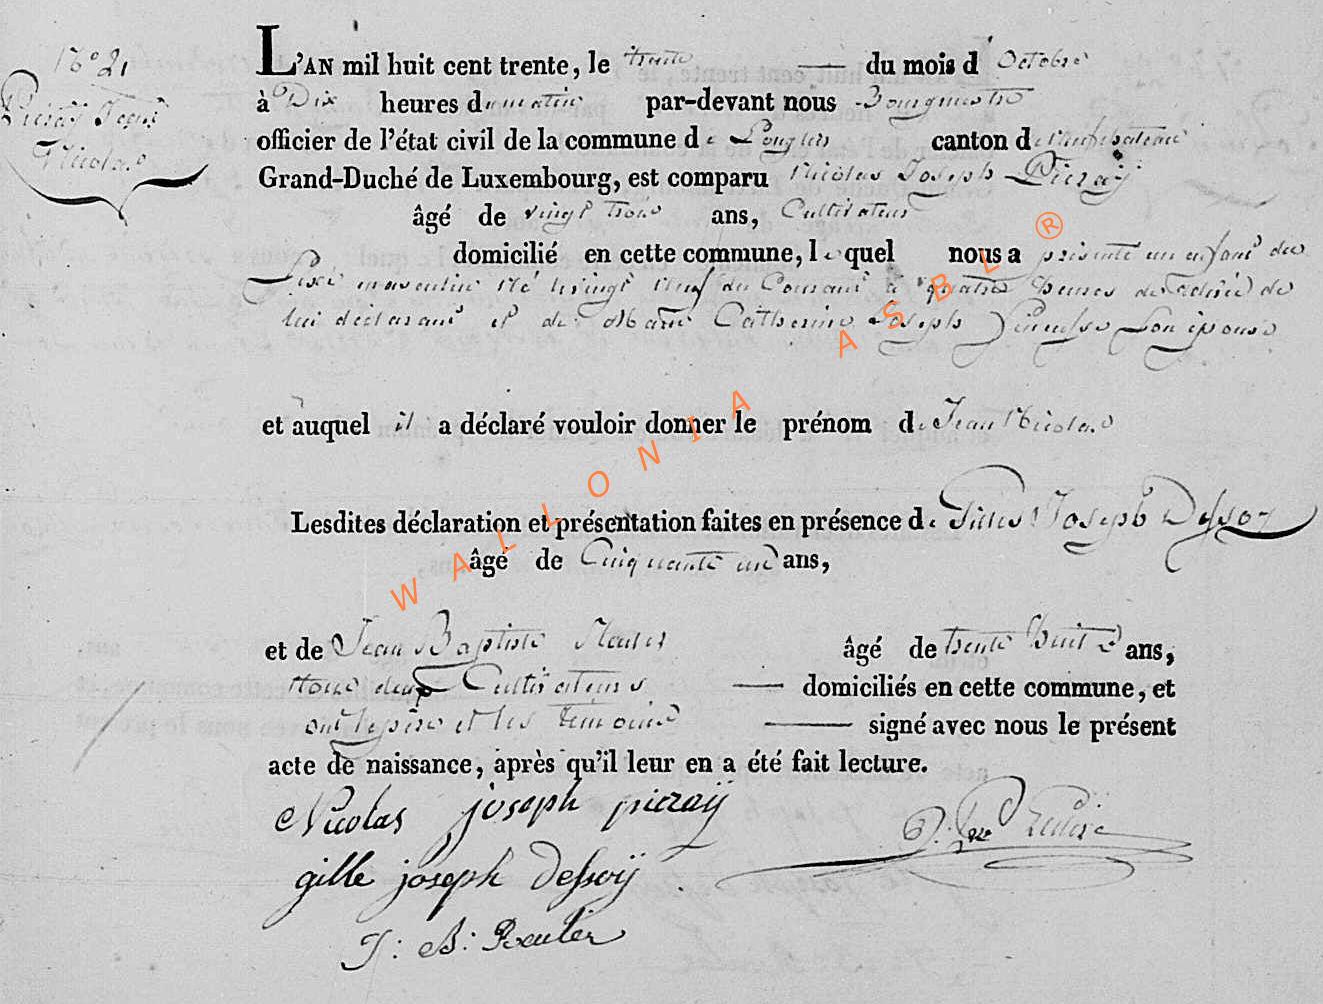 N° 21
Pieraÿ Jean
Nicolas
L'AN mil huit cent trente, le trente du mois d'Octobre
à Dix heures du matin par-devant nous Bourgmestre
officier de l'état civil de la commune de Longlier canton de Neufchateau
Grand-Duché de Luxembourg, est comparu Nicolas Joseph Pieraÿ
âgé de vingt trois ans, Cultivateur
domicilié en cette commune, lequel nous a présenté un enfant du
Sexe masculin né le vingt neuf du Courant à quatre heures de de
lui déclarant et de Marie Catherine Joseph Son épouse
et auquel il a déclaré vouloir donner le prénom de Jean Nicolas
Lesdites déclaration et présentation faites en présence de Gilles Joseph Dessoy
âgé de Cinquante un ans,
et de Jean Baptiste âgé de trente huit ans,
tous deux Cultivateurs domiciliés en cette commune, et
ont le père et les témoins signé avec nous le présent
acte de naissance, après qu'il leur en a été fait lecture.
Nicolas joseph pieraÿ
gille joseph Dessoÿ
J: B:
WALLONIA ASBL ®